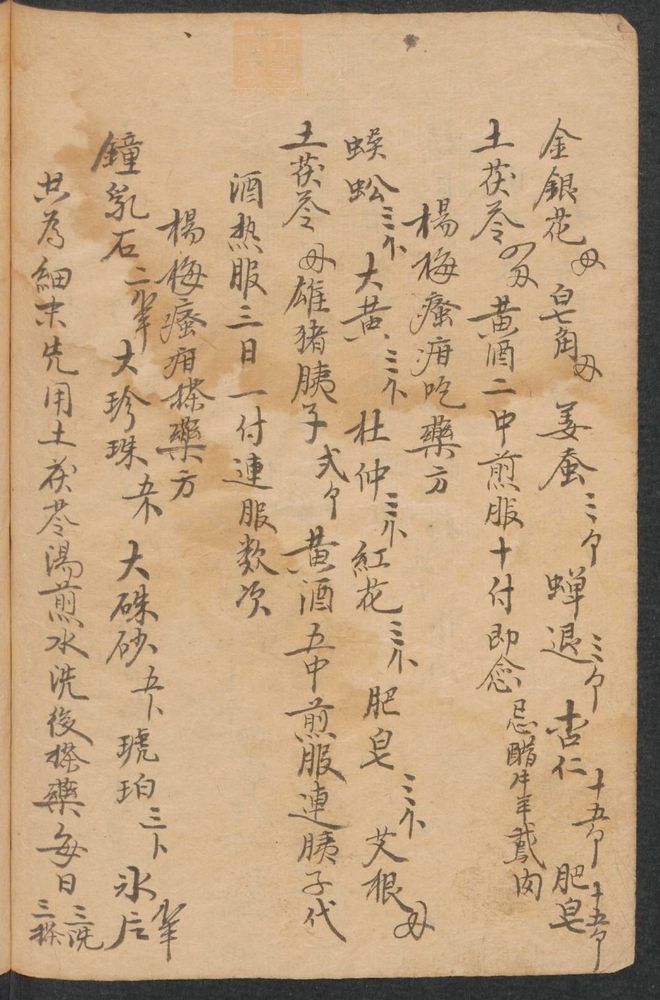 金銀花 皂角 姜蚕三个 蝉退三个 杏仁十五个 肥皂十五个
土茯苓 黄酒二中煎服十付即念 忌醋牛羊鵞肉
楊梅瘡疳吃藥方
蜈蚣三个 大黄三 杜仲三 紅花三 肥皂三个 艾根
土茯苓 雄猪胰子弍个 黄酒五中煎服連胰子代
酒热服三日一付連服数次
楊梅瘡疳搽藥方
鐘乳石二 大珍珠 大硃砂五卜 琥珀三卜 氷片
共為細末先用土茯苓湯煎水洗後搽藥每日三洗三搽